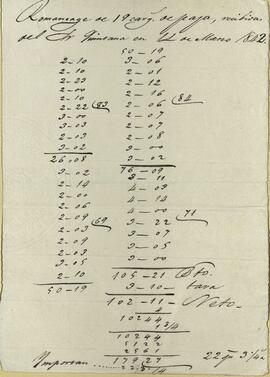 Romaneage de 19 carg.s de paja, recibidas
del Sr Quintana en 12 de Marzo 842.
2-10
2-10
2-23
2-00
2-10
2-22 (83
3-03
2-03
2-03
3-02
26-08
3-02
2-14
2-00
2-06
2-09 (69
2-03
2-09
2-03
3-05
2-10
50-19
50-19
3-06
2-01
2-12
2-16
2-06 (84
2-07
2-07
2-08
3-00
3-02
76-09
3-11
4-03
4-14
4-00 71
3-22
3-07
3-05
3-00
105-21 Bto.
3-10- tara
102-11- Neto.
10244
3/4
10244
5122
2561
Importan 17927 22 ps 3 1/4 rs